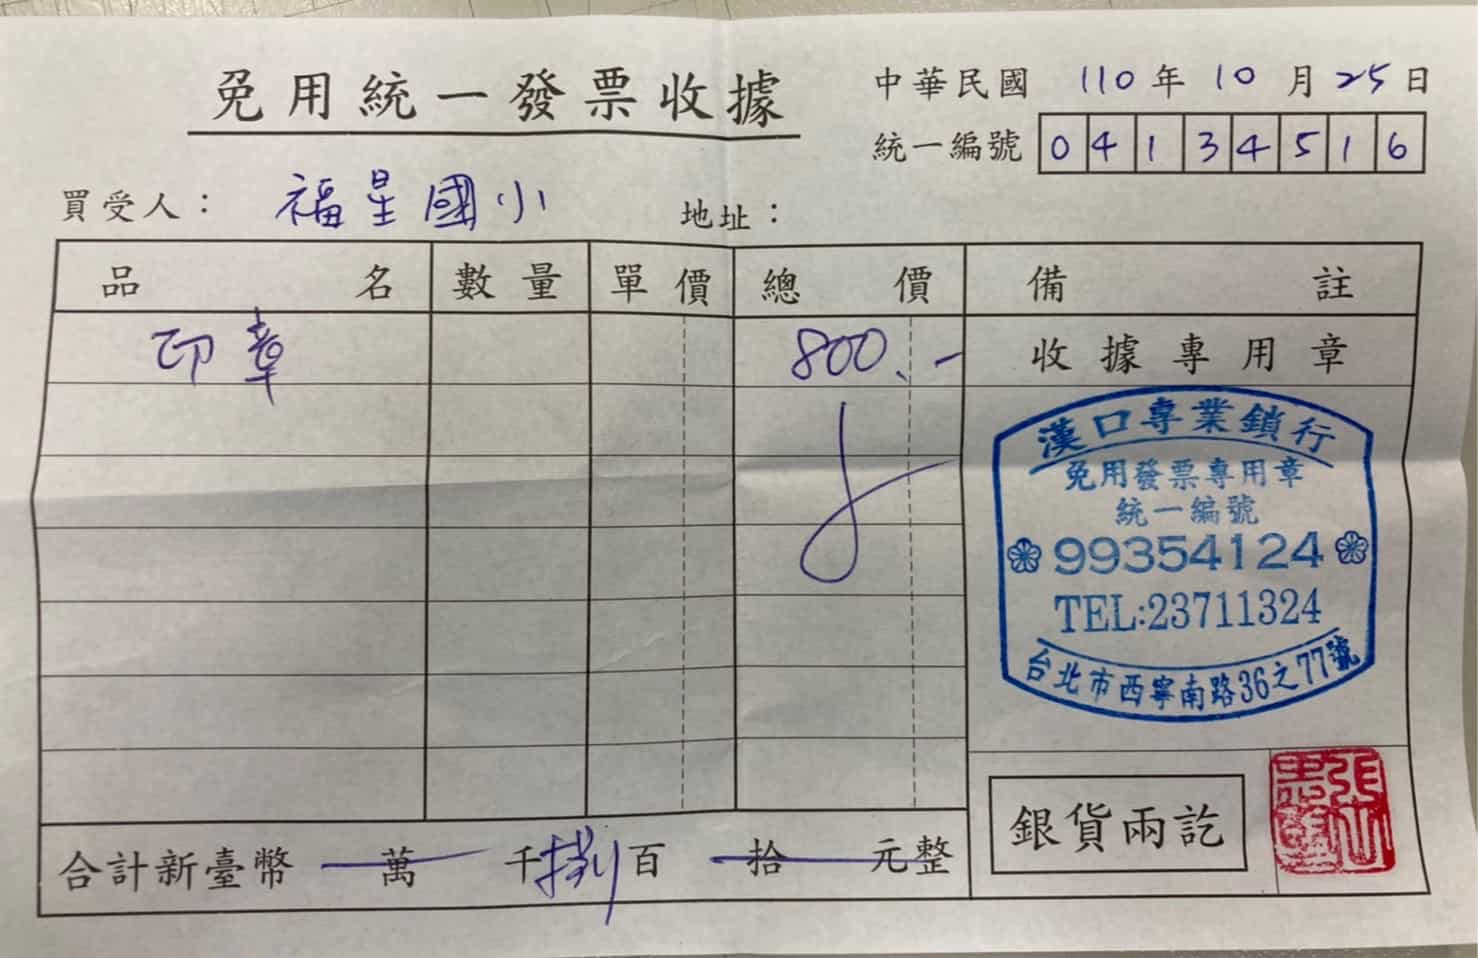 免用統一發票收據
中華民國 110 年 10 月 25 日
統一編號 04134516
買受人： 福星國小 地址：
品名 數量 單價 總價 備註
印章 800.- 收據專用章
漢口專業鎖行
免用發票專用章
統一編號
99354124
TEL:23711324
台北市西寧南路36之77號
銀貨兩訖
合計新臺幣 萬 千捌百 拾 元整